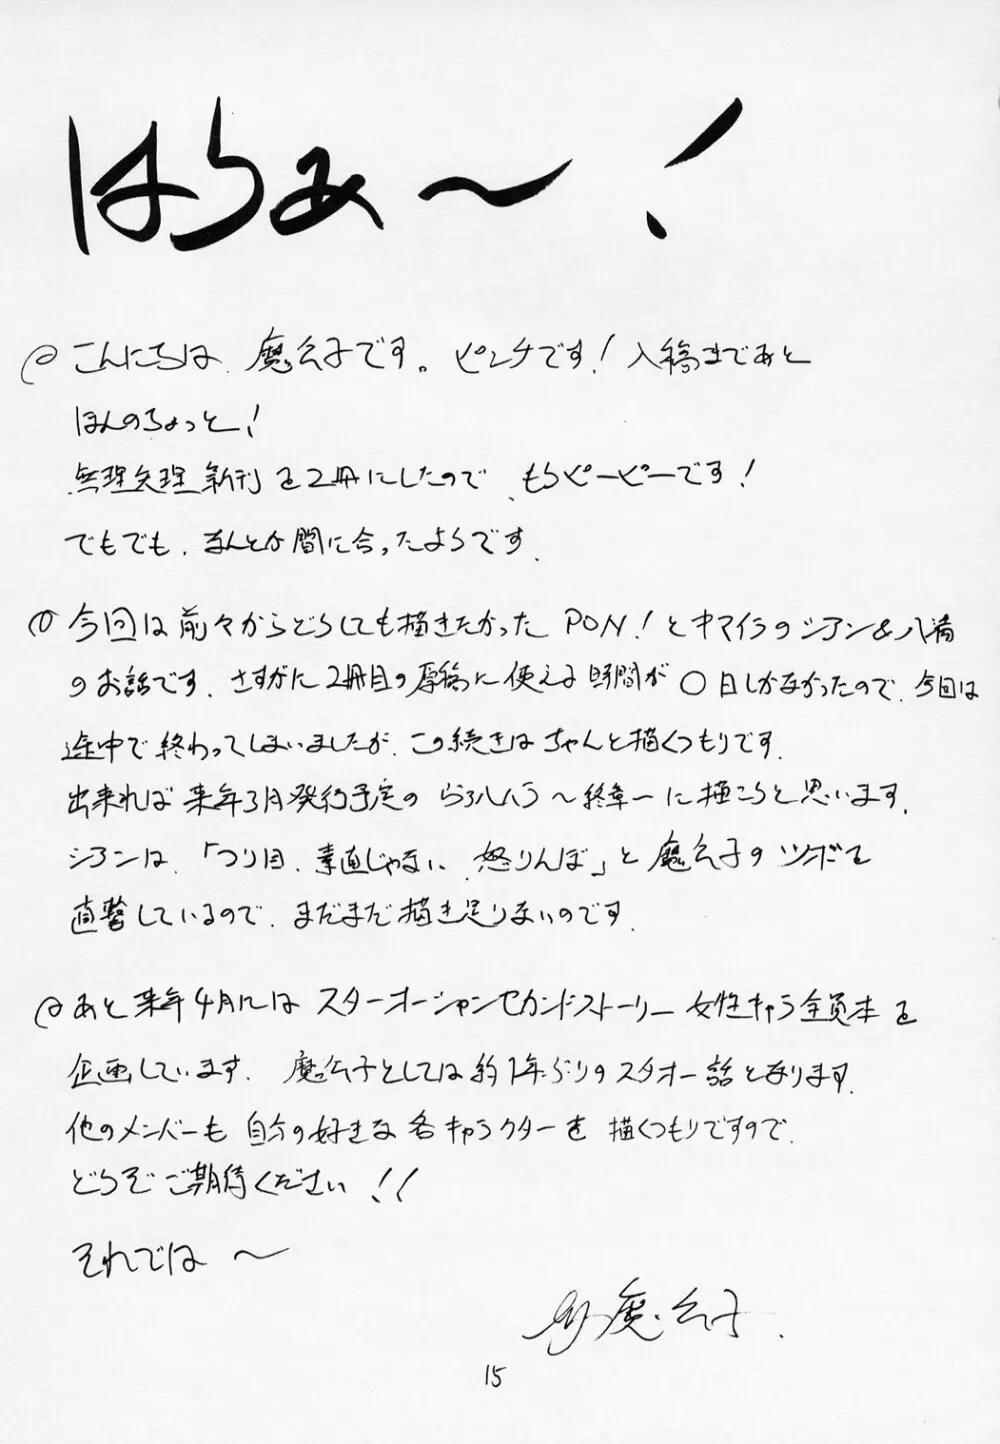 はろぉ〜!
こんにちは 魔公子です。ピンチです! 入稿まであと
ほんのちょっと!
無理矢理新刊を2冊にしたので、もうピーピーです!
でもでも、なんとか間に合ったようです。
今回は前々からどうしても描きたかった PON!とキマイラのシアン&八満
のお話です。さすがに2冊目の原稿に使える時間が〇日しかなかったので、今回は
途中で終わってしまいましたが、この続きはちゃんと描くつもりです。
出来れば来年3月発行予定の らぶハラ〜終章〜に描こうと思います。
シアンは、「つり目、素直じゃない、怒りんぼ」と魔公子のツボを
直撃しているので、まだまだ描き足りないのです。
あと来年4月には スターオーシャンセカンドストーリー 女性キャラ全員本を
企画しています。魔公子としては約1年ぶりのスタオー話となります。
他のメンバーも自分の好きな各キャラクターを描くつもりですので、
どうぞご期待ください!!
それでは〜
魔公子.
15